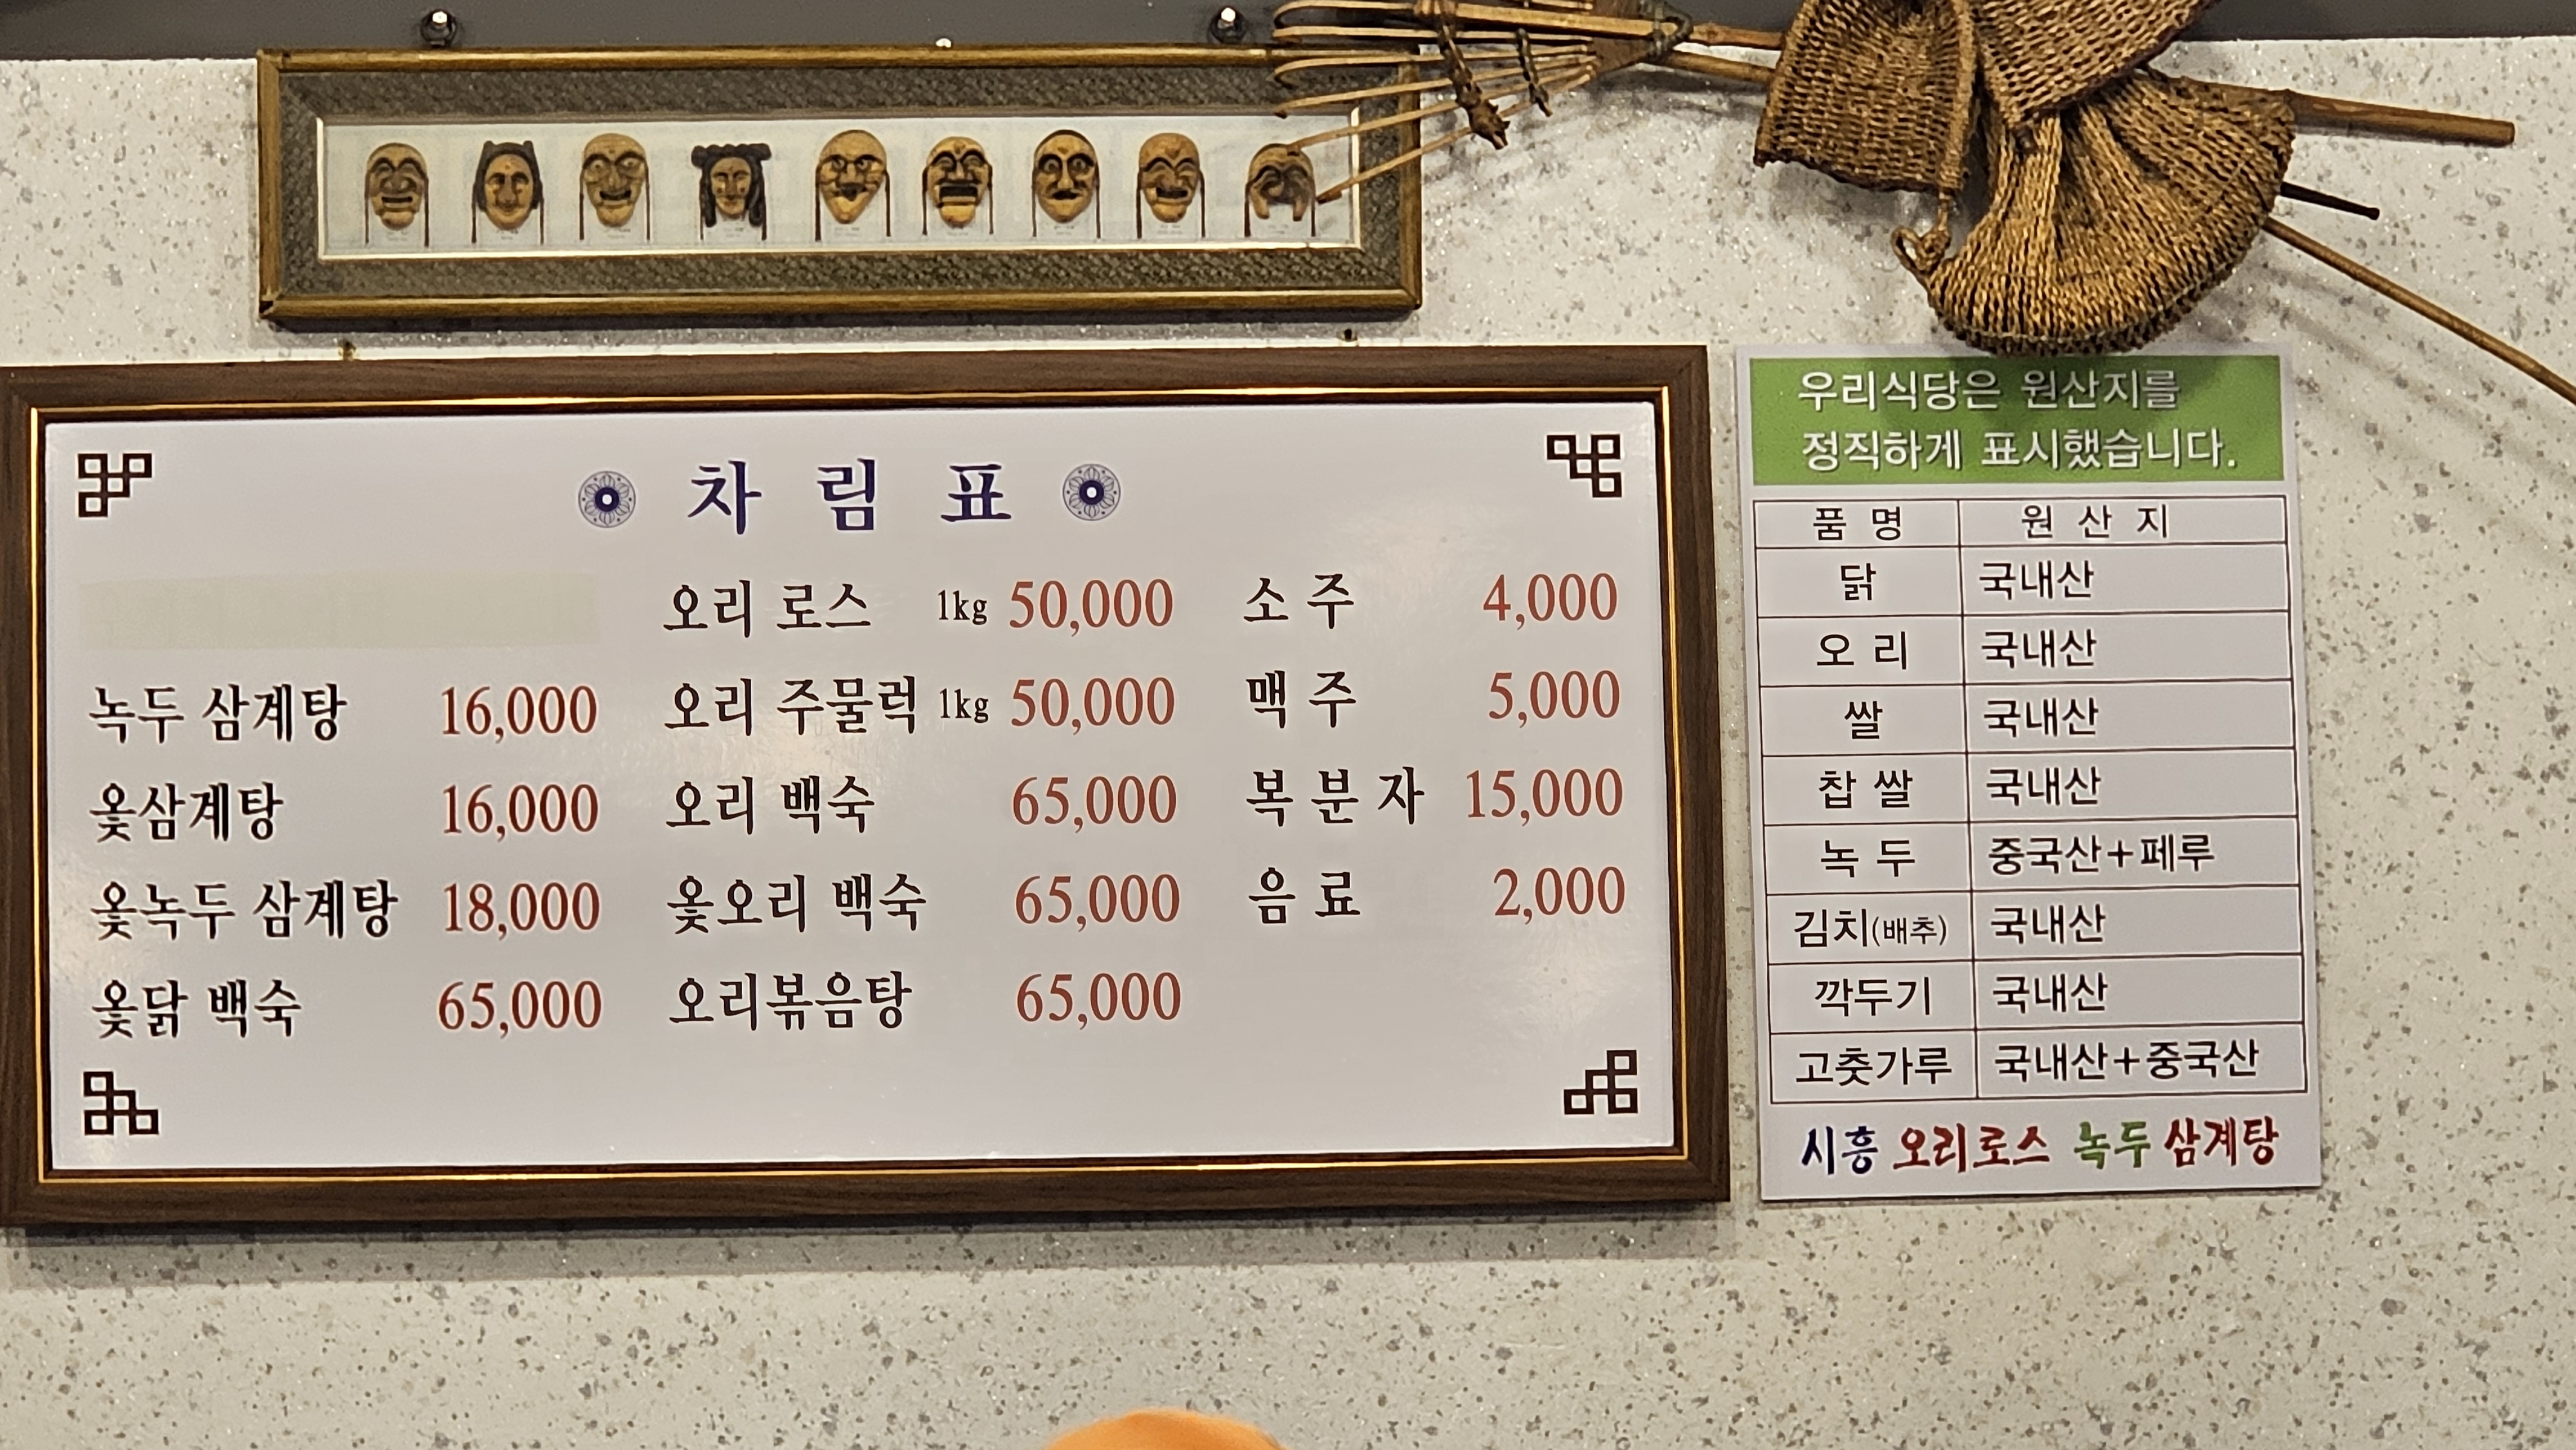 차 림 표
녹두 삼계탕 16,000
옻삼계탕 16,000
옻녹두 삼계탕 18,000
옻닭 백숙 65,000
오리 로스 1kg 50,000
오리 주물럭 1kg 50,000
오리 백숙 65,000
옻오리 백숙 65,000
오리볶음탕 65,000
소 주 4,000
맥 주 5,000
복 분 자 15,000
음 료 2,000
우리식당은 원산지를
정직하게 표시했습니다.
품 명 원 산 지
닭 국내산
오 리 국내산
쌀 국내산
찹 쌀 국내산
녹 두 중국산+페루
김치(배추) 국내산
깍두기 국내산
고춧가루 국내산+중국산
시흥 오리로스 녹두 삼계탕